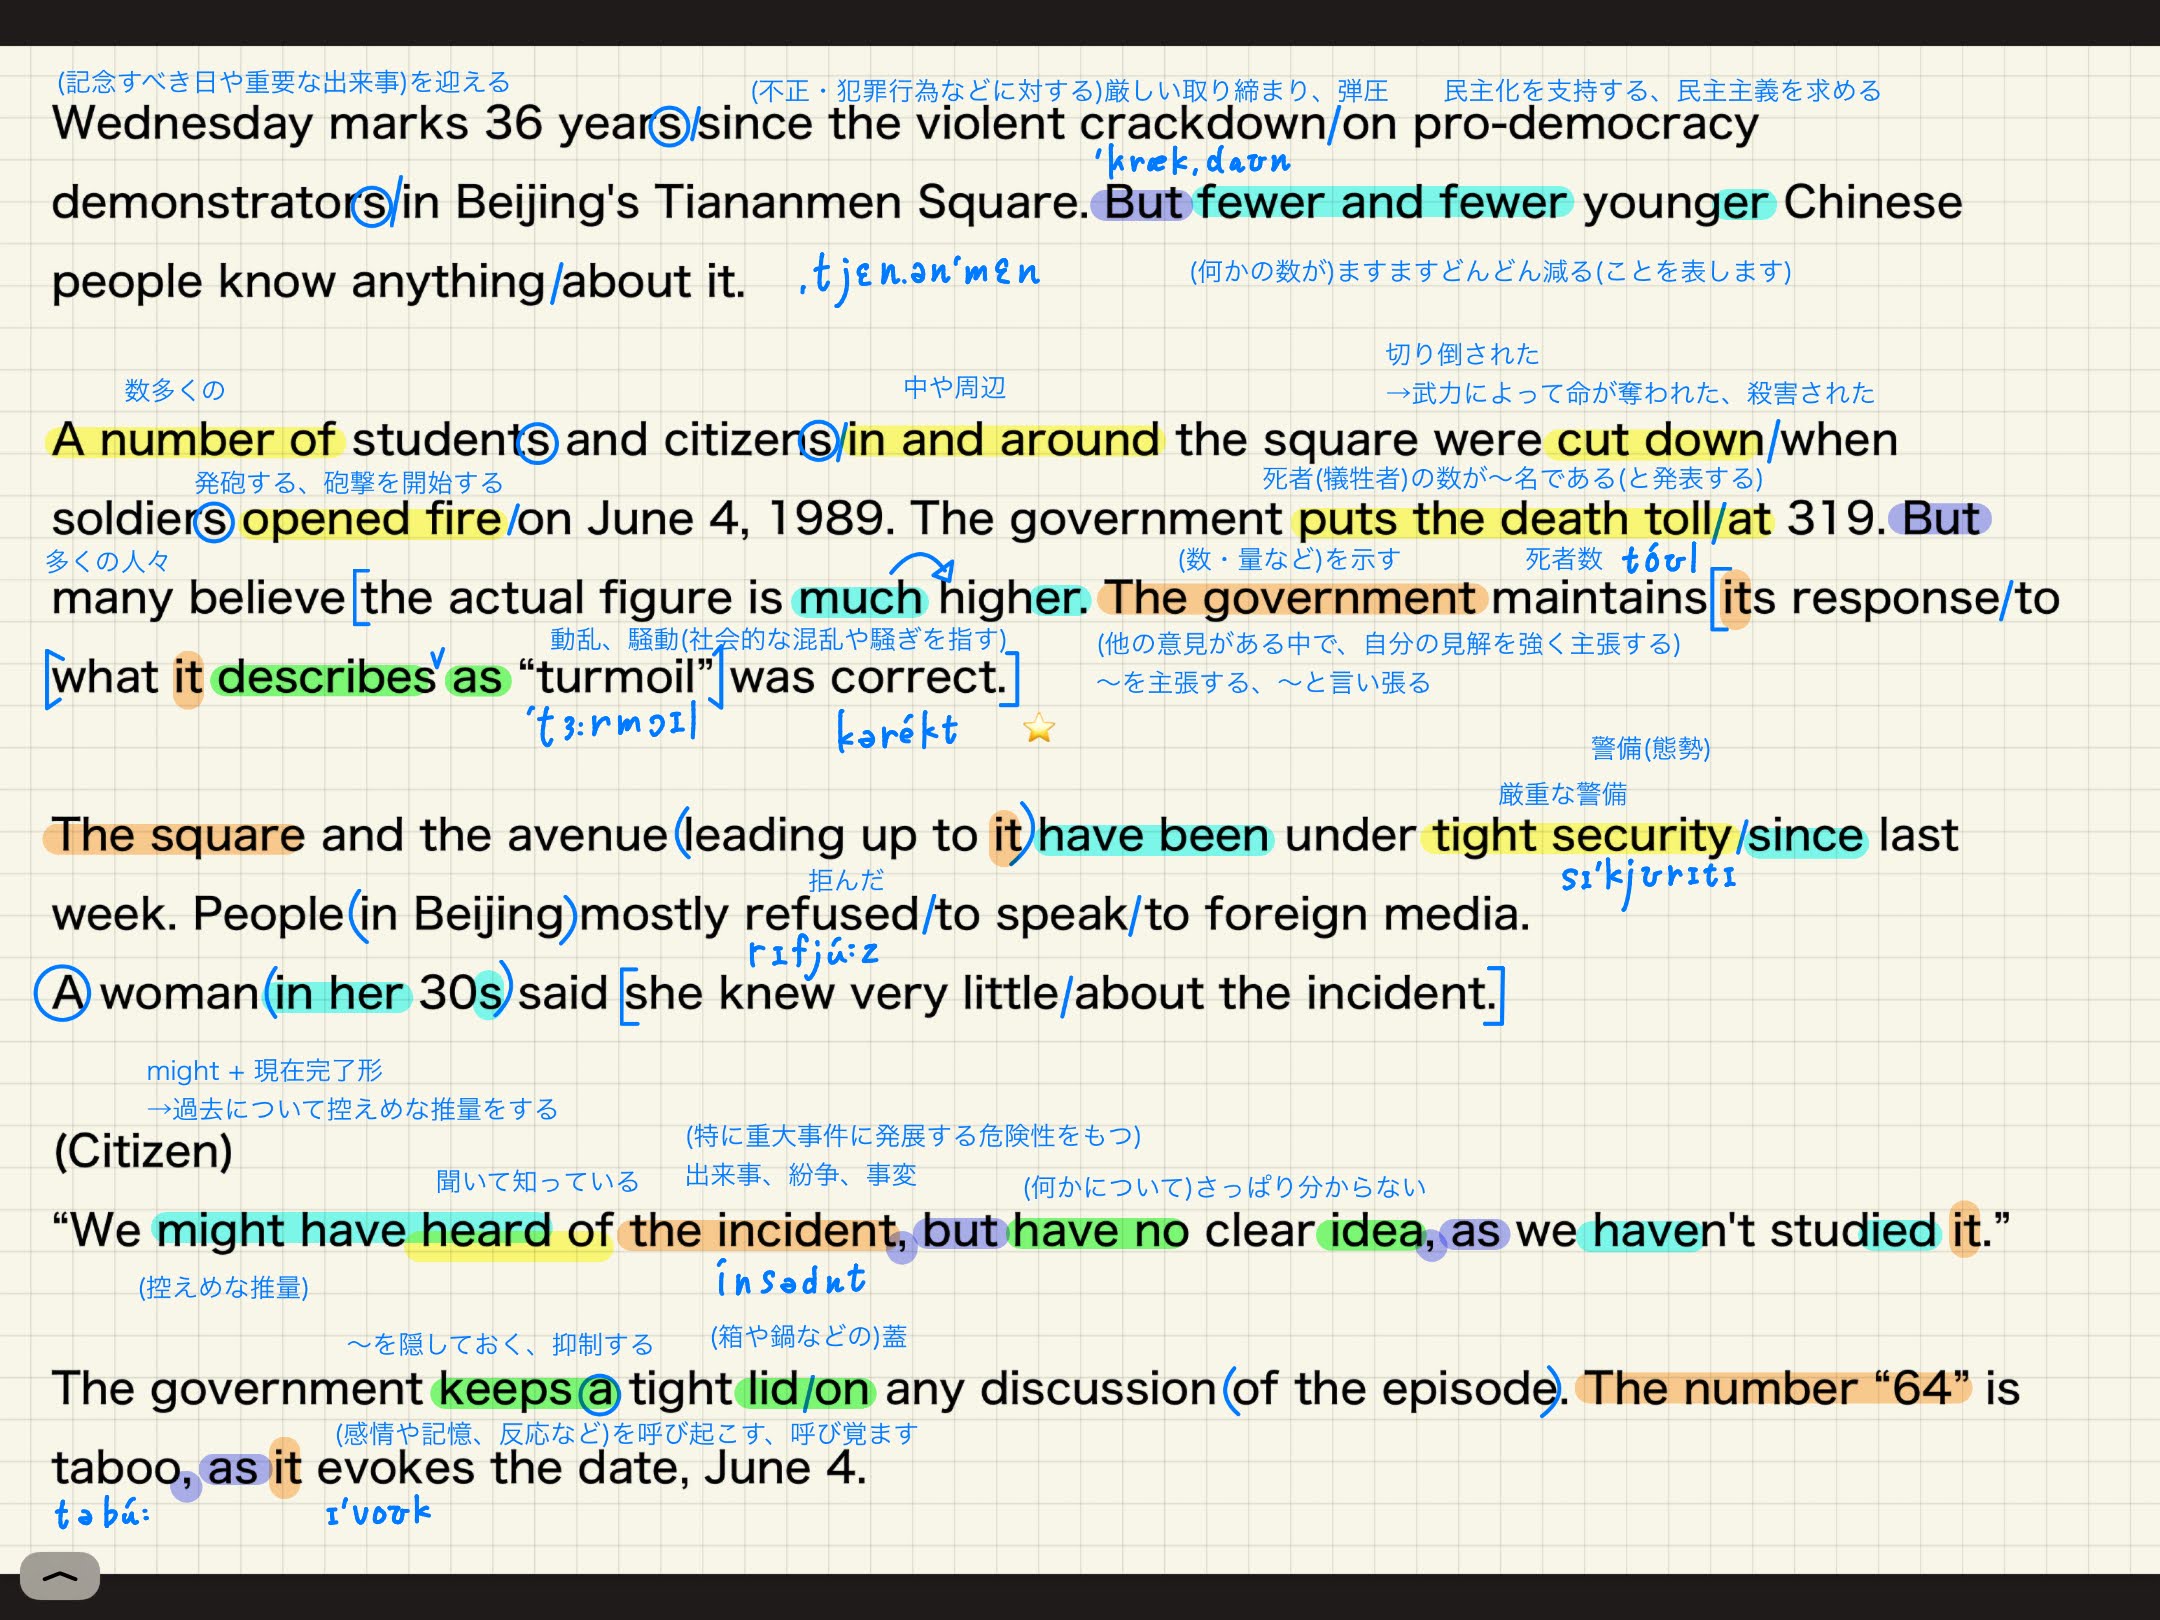 (記念すべき日や重要な出来事)を迎える
(不正・犯罪行為などに対する)厳しい取り締まり、弾圧
民主化を支持する、民主主義を求める
Wednesday marks 36 years/since the violent crackdown/on pro-democracy
ˈkræk,daʊn
demonstrators/in Beijing's Tiananmen Square. But fewer and fewer younger Chinese
people know anything/about it.
,tjɛn.ənˈmɛn
(何かの数が)ますますどんどん減る(ことを表します)
切り倒された
数多くの
中や周辺
→武力によって命が奪われた、殺害された
A number of students and citizens/in and around the square were cut down/when
発砲する、砲撃を開始する
死者(犠牲者)の数が〜名である(と発表する)
soldiers opened fire/on June 4, 1989. The government puts the death toll/at 319. But
多くの人々
(数・量など)を示す
死者数
tóʊl
many believe [the actual figure is much higher. The government maintains [its response/to
動乱、騒動(社会的な混乱や騒ぎを指す)
(他の意見がある中で、自分の見解を強く主張する)
[what it describes as “turmoil”] was correct.]
〜を主張する、〜と言い張る
ˈtɜːrmɔɪl
kərékt
警備(態勢)
厳重な警備
The square and the avenue (leading up to it) have been under tight security/since last
sɪˈkjʊrɪtɪ
拒んだ
week. People (in Beijing) mostly refused/to speak/to foreign media.
rɪfjúːz
A woman (in her 30s) said [she knew very little/about the incident.]
might + 現在完了形
→過去について控えめな推量をする
(Citizen)
(特に重大事件に発展する危険性をもつ)
出来事、紛争、事変
聞いて知っている
(何かについて)さっぱり分からない
“We might have heard of the incident, but have no clear idea, as we haven't studied it.”
(控えめな推量)
ínsədnt
〜を隠しておく、抑制する
(箱や鍋などの)蓋
The government keeps a tight lid/on any discussion (of the episode). The number “64” is
(感情や記憶、反応など)を呼び起こす、呼び覚ます
taboo, as it evokes the date, June 4.
təbúː
ɪˈvoʊk